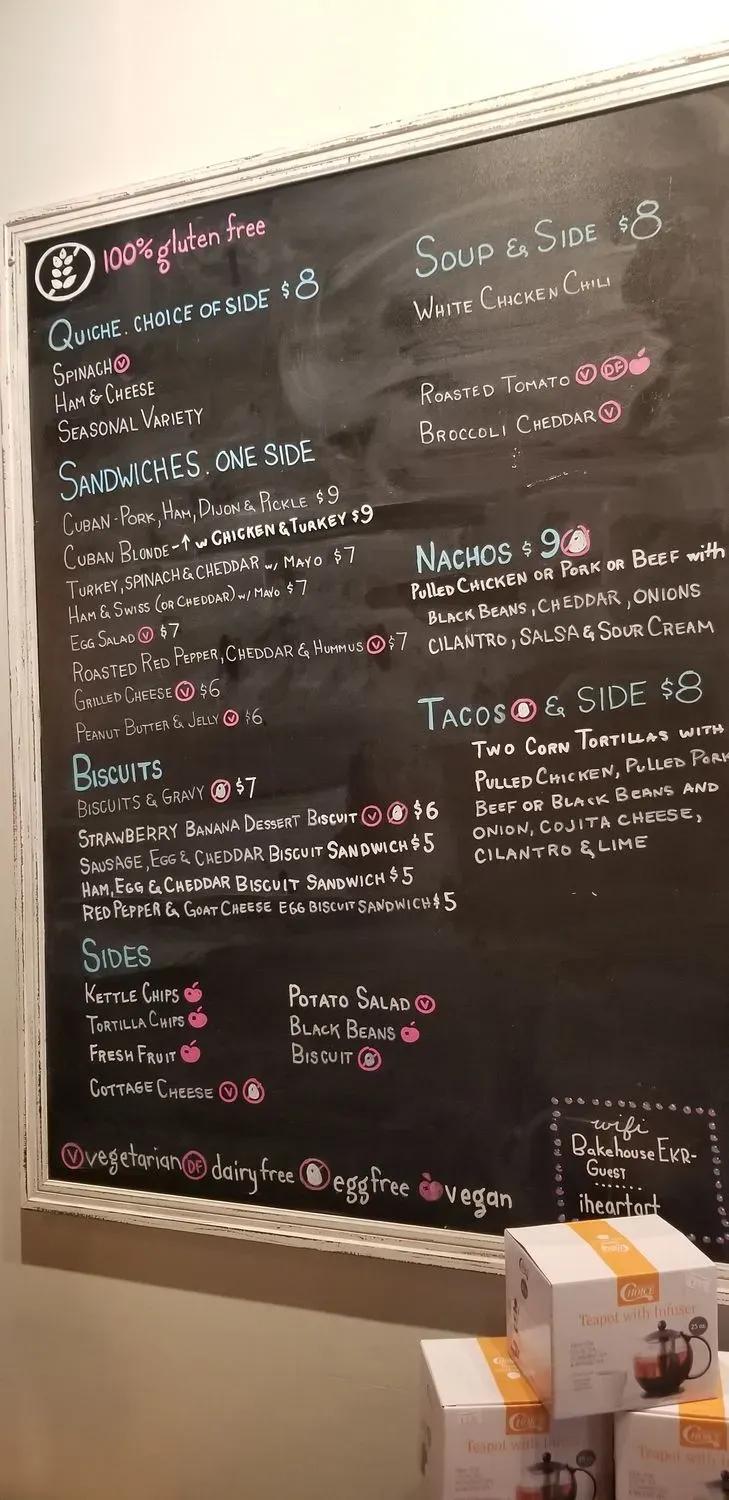 100% gluten free
QUICHE. CHOICE OF SIDE $8
SPINACH V
HAM & CHEESE
SEASONAL VARIETY
SANDWICHES. ONE SIDE
CUBAN-PORK, HAM, DIJON & PICKLE $9
CUBAN BLONDE-↑ w/ CHICKEN & TURKEY $9
TURKEY, SPINACH & CHEDDAR w/ MAYO $7
HAM & SWISS (OR CHEDDAR) w/ MAYO $7
EGG SALAD V $7
ROASTED RED PEPPER, CHEDDAR & HUMMUS V $7
GRILLED CHEESE V $6
PEANUT BUTTER & JELLY V $6
BISCUITS
BISCUITS & GRAVY $7
STRAWBERRY BANANA DESSERT BISCUIT V $6
SAUSAGE, EGG & CHEDDAR BISCUIT SANDWICH $5
HAM, EGG & CHEDDAR BISCUIT SANDWICH $5
RED PEPPER & GOAT CHEESE EGG BISCUIT SANDWICH $5
SIDES
KETTLE CHIPS
TORTILLA CHIPS
FRESH FRUIT
COTTAGE CHEESE V
POTATO SALAD V
BLACK BEANS
BISCUIT
SOUP & SIDE $8
WHITE CHICKEN CHILI
ROASTED TOMATO V DF
BROCCOLI CHEDDAR V
NACHOS $9
PULLED CHICKEN OR PORK OR BEEF with
BLACK BEANS, CHEDDAR, ONIONS
CILANTRO, SALSA & SOUR CREAM
TACOS & SIDE $8
TWO CORN TORTILLAS WITH
PULLED CHICKEN, PULLED PORK
BEEF OR BLACK BEANS AND
ONION, COJITA CHEESE,
CILANTRO & LIME
V vegetarian DF dairy free egg free vegan
wifi
Bakehouse EKR-
GUEST
iheartart
CHOICE
Teapot with Infuser
25 oz
CHOICE
Teapot with
CHOICE
Teapot with